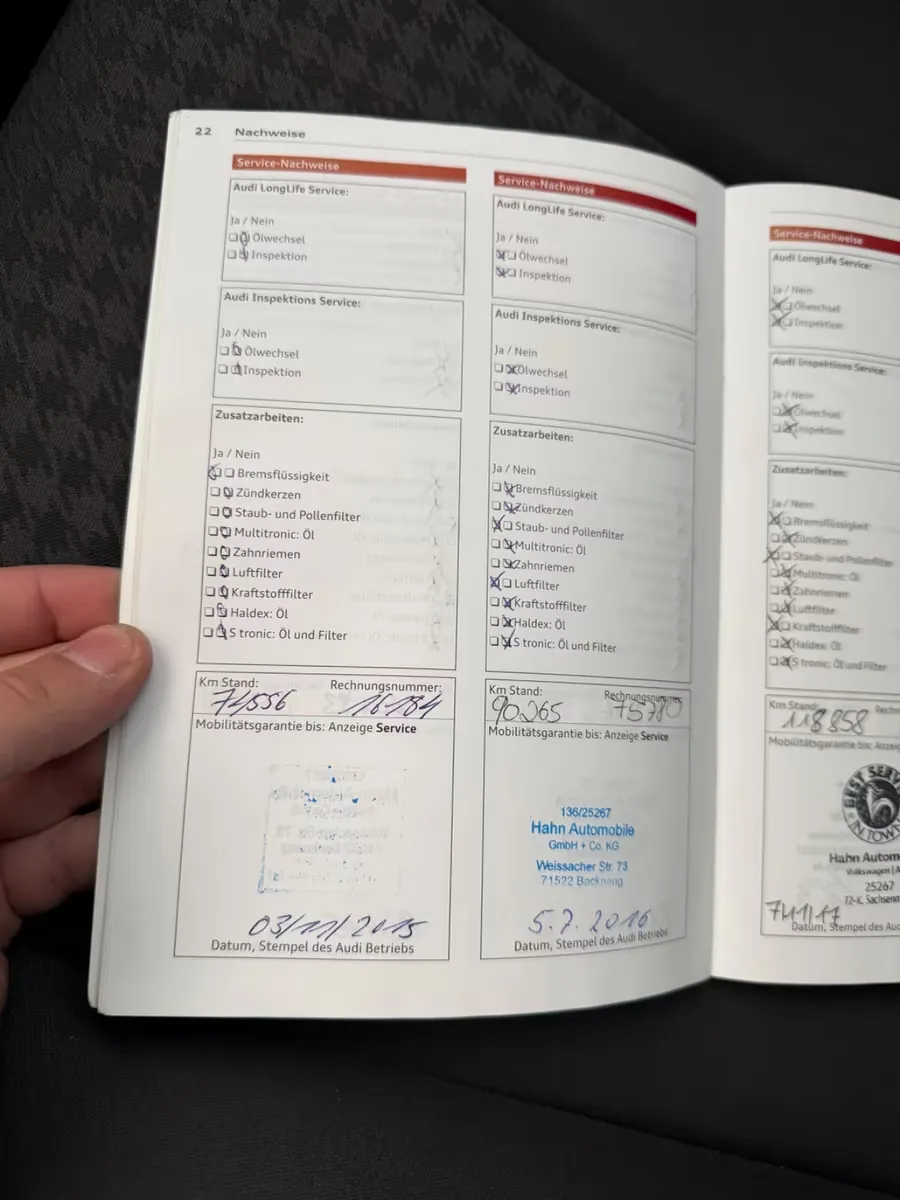 22 Nachweise
Service-Nachweise
Audi LongLife Service:
Ja / Nein
Ölwechsel
Inspektion
Audi Inspektions Service:
Ja / Nein
Ölwechsel
Inspektion
Zusatzarbeiten:
Ja / Nein
Bremsflüssigkeit
Zündkerzen
Staub- und Pollenfilter
Multitronic: Öl
Zahnriemen
Luftfilter
Kraftstofffilter
Haldex: Öl
S tronic: Öl und Filter
Km Stand: Rechnungsnummer:
74556 16184
Mobilitätsgarantie bis: Anzeige Service
03/11/2015
Datum, Stempel des Audi Betriebs
Service-Nachweise
Audi LongLife Service:
Ja / Nein
Ölwechsel
Inspektion
Audi Inspektions Service:
Ja / Nein
Ölwechsel
Inspektion
Zusatzarbeiten:
Ja / Nein
Bremsflüssigkeit
Zündkerzen
Staub- und Pollenfilter
Multitronic: Öl
Zahnriemen
Luftfilter
Kraftstofffilter
Haldex: Öl
S tronic: Öl und Filter
Km Stand: Rechnungsnummer:
90265 75780
Mobilitätsgarantie bis: Anzeige Service
136/25267
Hahn Automobile
GmbH + Co. KG
Weissacher Str. 73
71522 Backnang
5.7.2016
Datum, Stempel des Audi Betriebs
Service-Nachweise
Audi LongLife Service:
Ja / Nein
Ölwechsel
Inspektion
Audi Inspektions Service:
Ja / Nein
Ölwechsel
Inspektion
Zusatzarbeiten:
Ja / Nein
Bremsflüssigkeit
Zündkerzen
Staub- und Pollenfilter
Multitronic: Öl
Zahnriemen
Luftfilter
Kraftstofffilter
Haldex: Öl
S tronic: Öl und Filter
Km Stand: Rechn
118858
Mobilitätsgarantie bis: Anzeig
BEST SERVI
IN TOWN
Hahn Autom
Volkswagen | A
25267
Datum, Stempel des Au